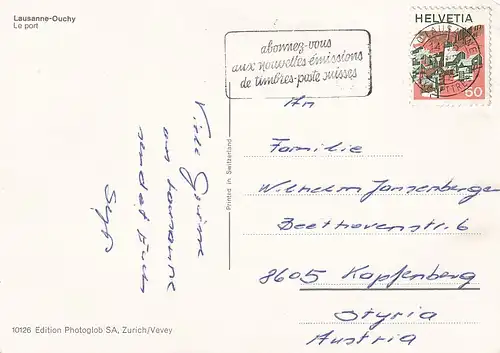 Lausanne-Ouchy
Le port
HELVETIA
60
abonnez-vous
aux nouvelles émissions
de timbres-poste suisses
An
Familie
Wilhelm Jansenberger
Beethovenstr. 6
8605 Kapfenberg
Styria
Austria
Viele Grüsse
aus Lausanne
sendet Euch
Printed in Switzerland
10126 Edition Photoglob SA, Zurich/Vevey